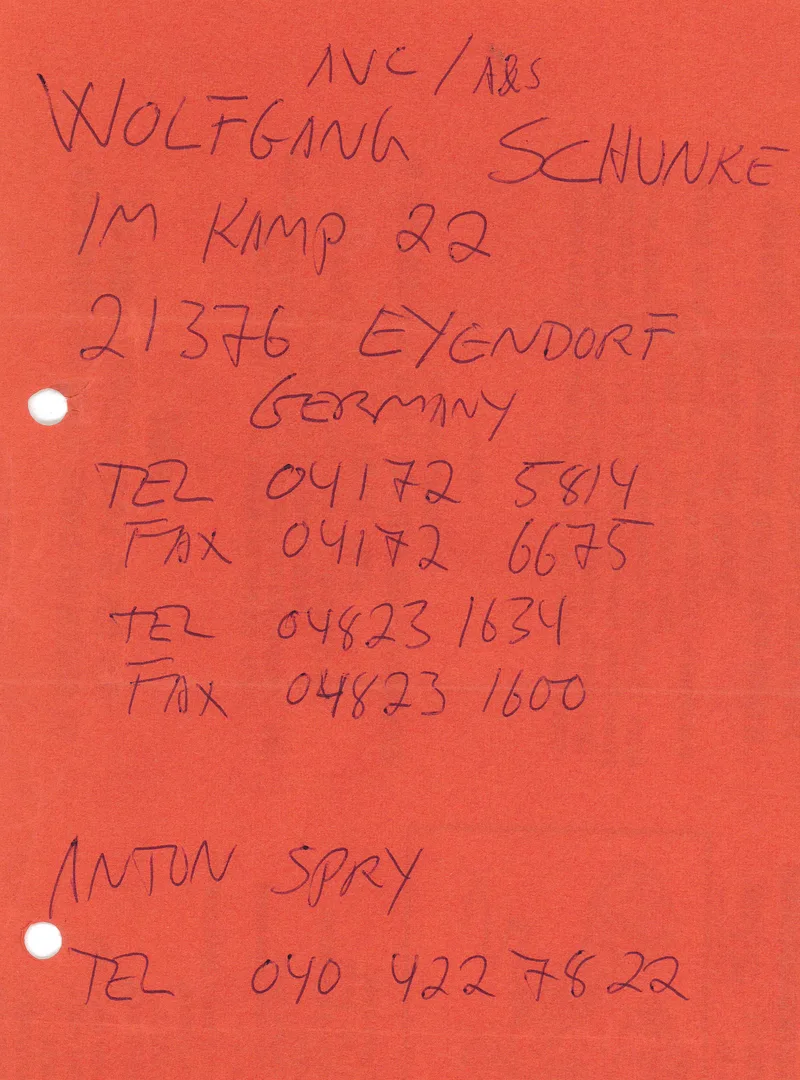 AVC / A&S
WOLFGANG SCHUNKE
IM KAMP 22
21376 EYENDORF
GERMANY
TEL 04172 5814
FAX 04172 6675
TEL 04823 1634
FAX 04823 1600
ANTON SPRY
TEL 040 422 78 22